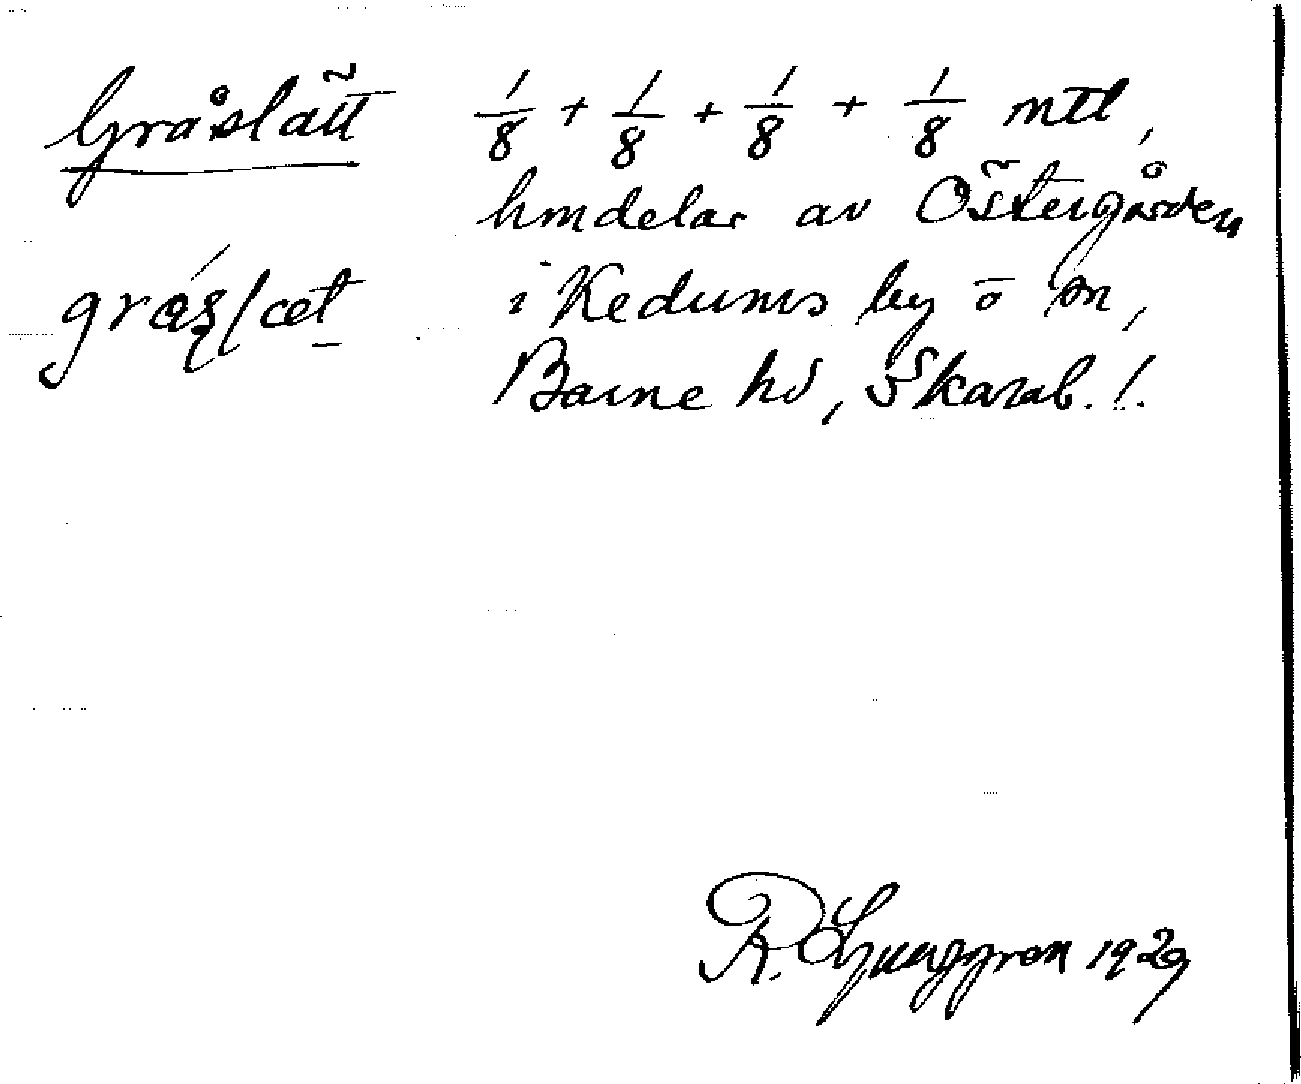 Gråslätt 1/8 + 1/8 + 1/8 + 1/8 mtl,
hmdelar av Östergården
i Kedums by o sn,
Barne hd, Skarab. l.
R. Ljunggren 1929